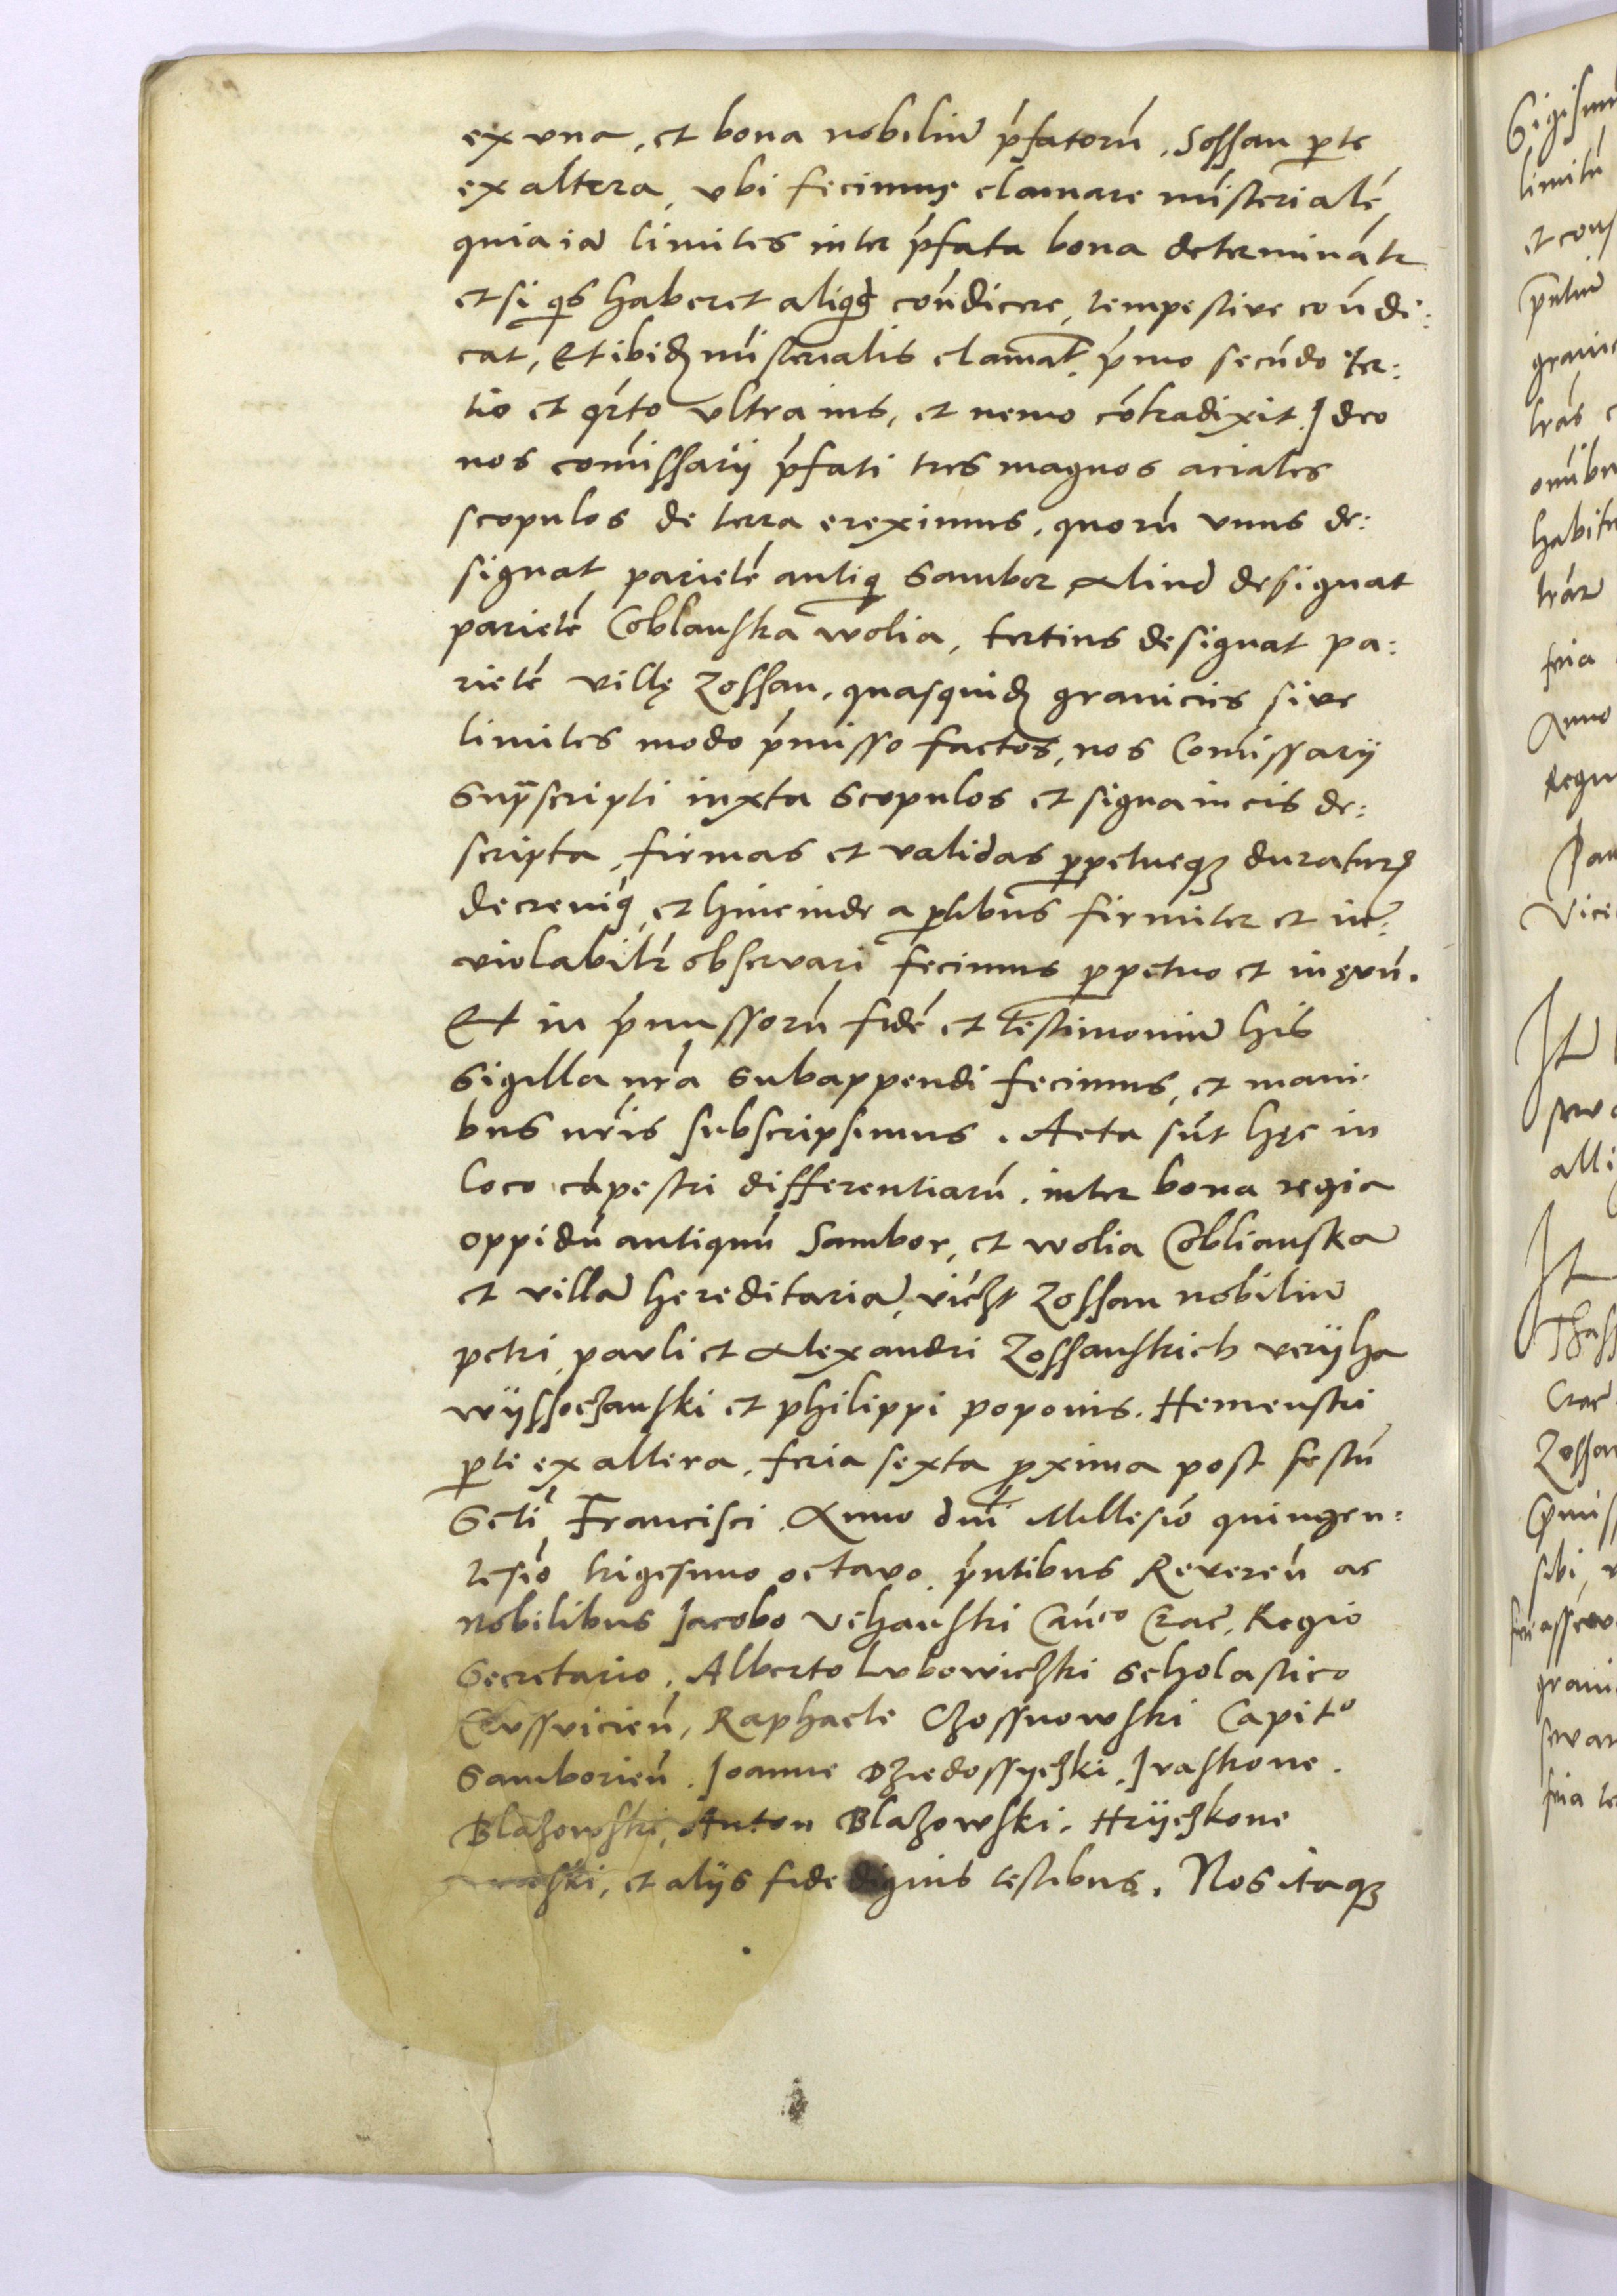 ex vna, et bona nobiliū p̄fatorū, Sossan pɐte
ex altera, vbi fecimus clamare mīsterialē,
quia iā limites inter p̄fata bona determinātr
et si qs haberet aliqd cōtrdicere, tempestive cōtrdi:
cat, Et ibidē mīsterialis clamat p̄mo secūdo ter:
tio et qrto vltra ius, et nemo cōtradixit. Ideo
nos comissarij p̄fati tres magnos aciales
scopulos de terra ereximus, quorū vnus de:
signat parietē antiq Sambor Aliud designat
parietē Coblanska wolia, tertius designat pa:
rietē villę Zossan, quasquidē granicies sive
limites modo p̄misso factos, nos Comissarij
Supscripti iuxta Scopulos et signa in eis de:
scripta, firmas et validas ꝑpetueqꝫ duraturas
decrevimus, et hincinde a ꝑtibus firmiter et in:
violabilr observari fecimus ꝑpetuo et in ęvū.
Et in p̄missorū fidē et testimoniū his
Sigilla nr̄a subappendi fecimus, et mani:
bus nr̄is subscripsimus. Acta sūt hęc in
loco cāpestri differentiarū, inter bona regia
oppidū antiquū Sambor, et wolia Coblianska
et villā hereditariā, viczt Zossan nobiliū
petri, pavli et Alexandri Zossanskich verÿha
wÿssoczanski et philippi poponis. Hemenstri
ꝑte ex altera, feria sexta ꝓxima post festū
Sctī Francisci. Anno dnī Millesīo quingen:
tesīo trigesimo octavo. p̄ntibus Reverēn ac
Nobilibus Jacobo Vchanski Canco Crac, Regio
Secretario, Alberto Lvbowiczki Scholastico
Crvssviciēn, Raphaele Chossnowski Capito
Samboriēn. Joanne Dziedossyczki. Ivaskone.
Blazowski, Anton Blazowski. Hrÿczkone
et alijs fide dignis testibus. Nos itaqꝫ